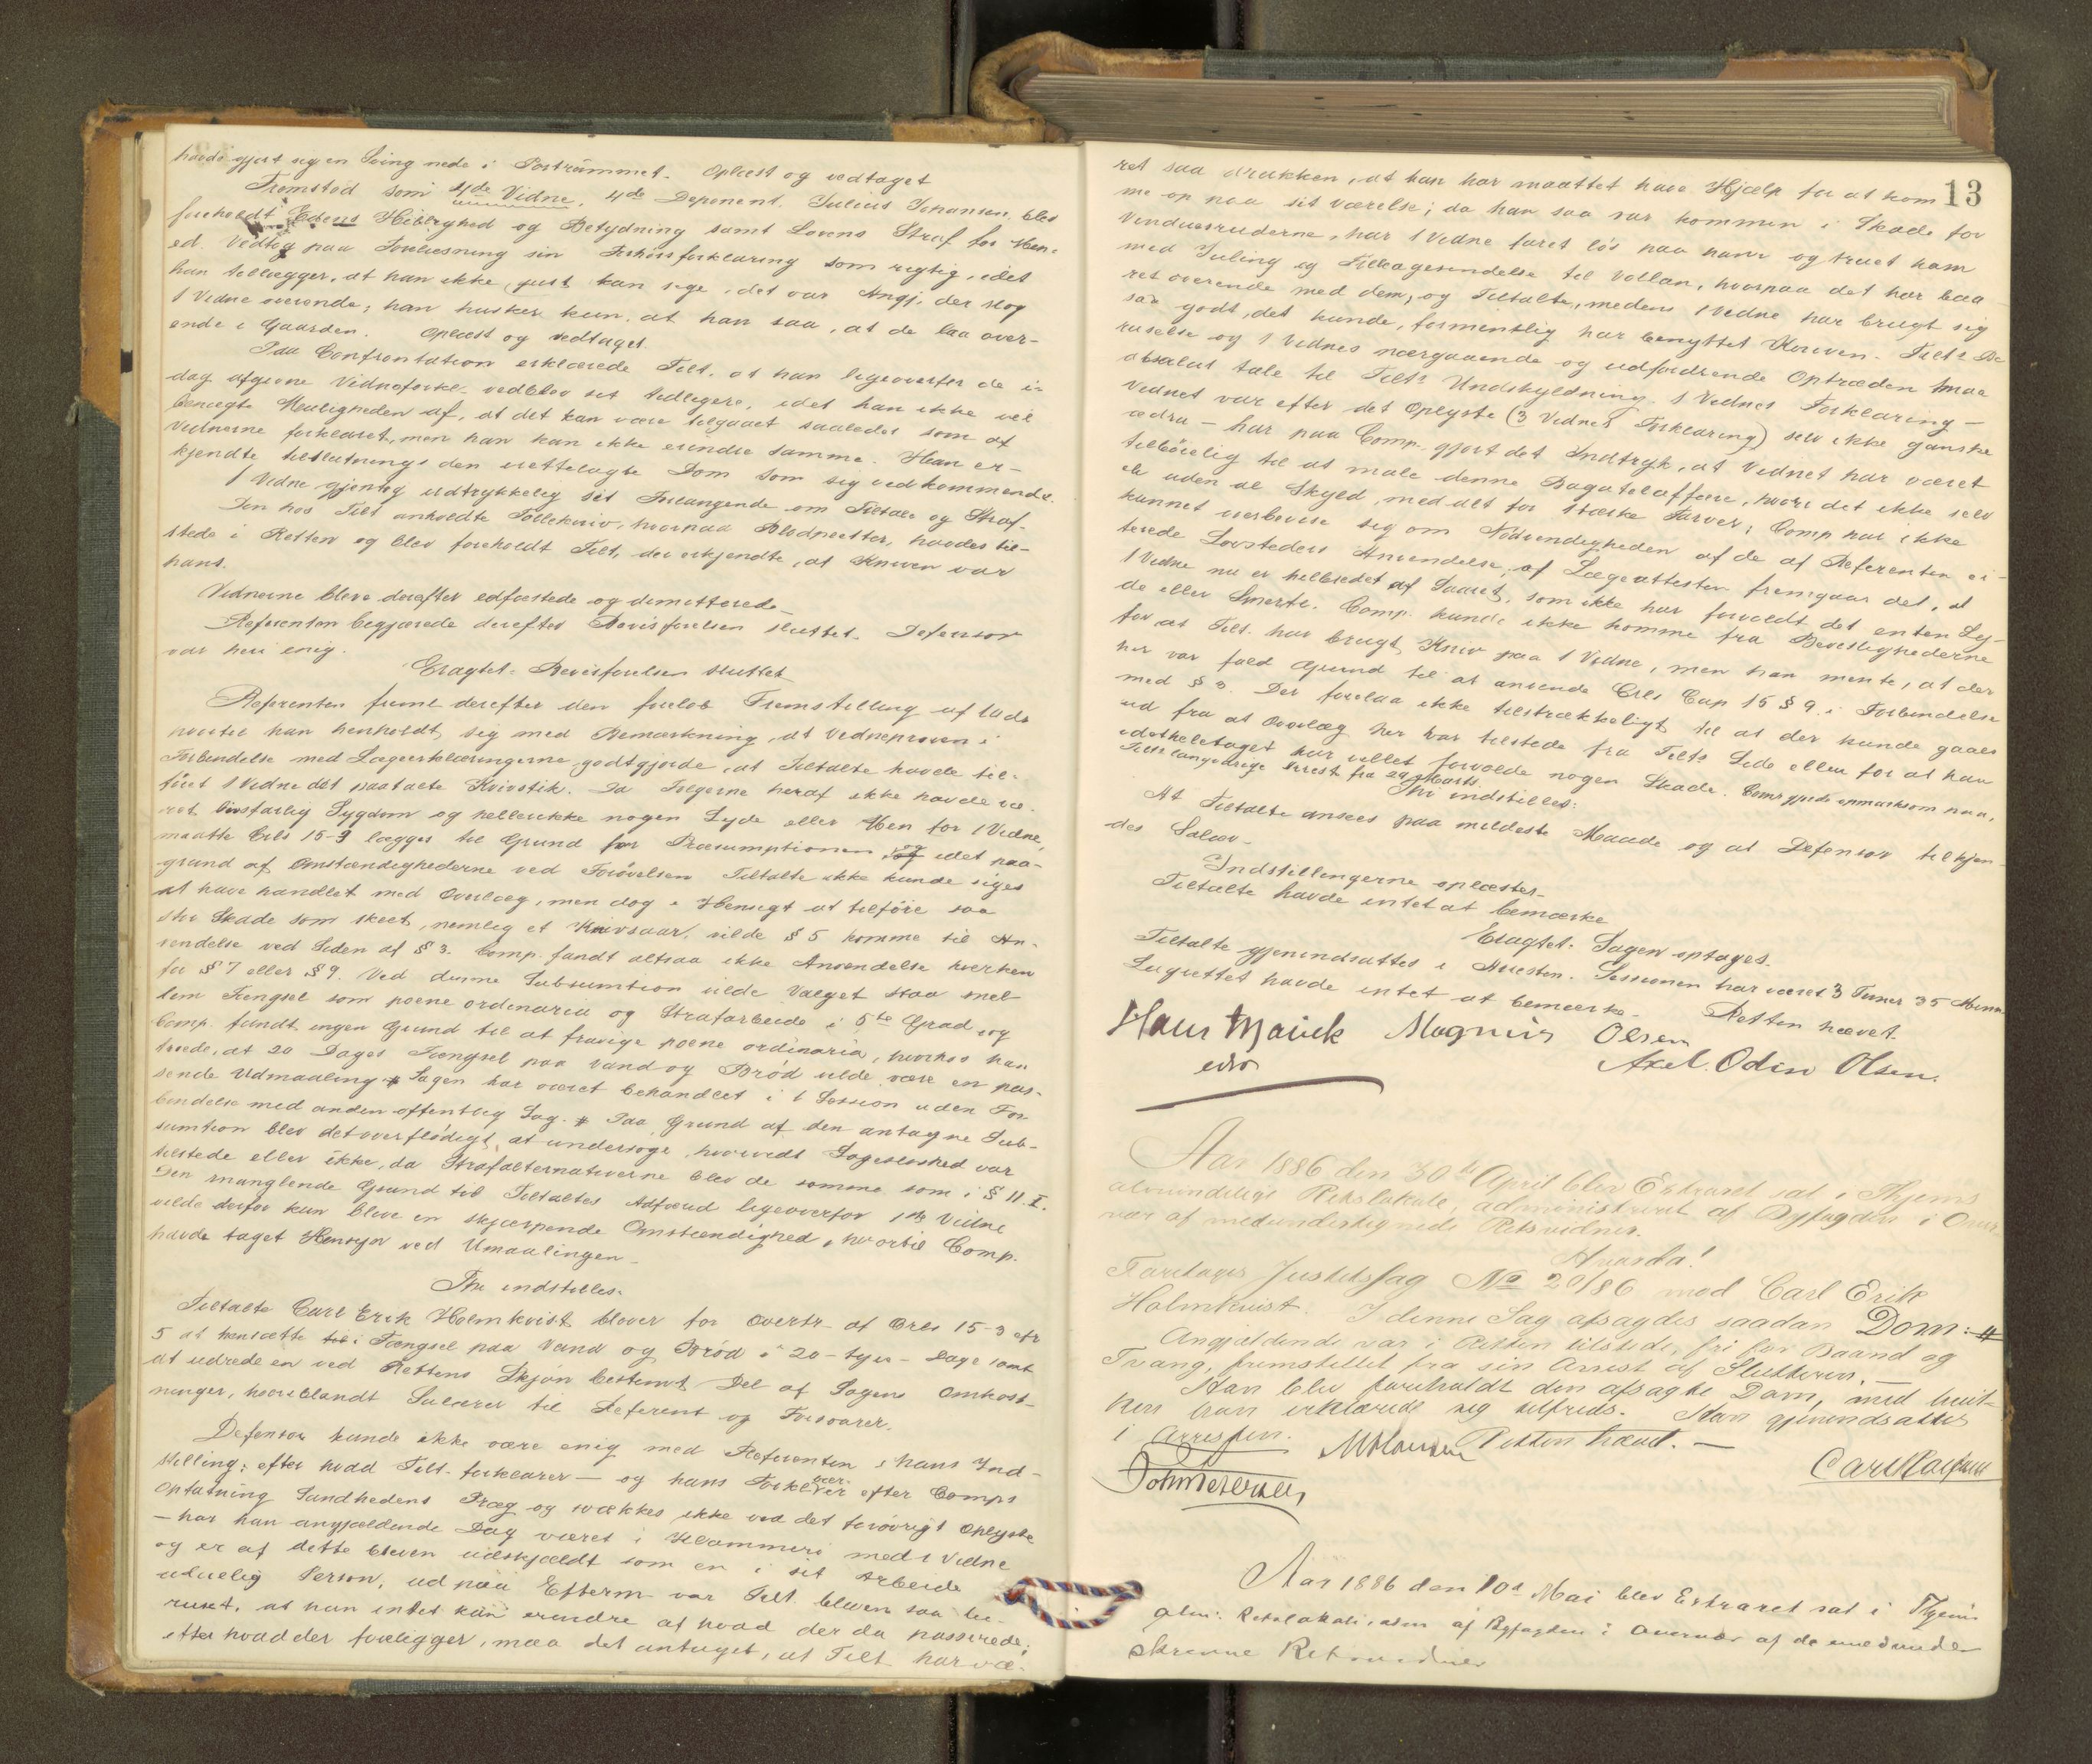 havde gjort sig en Sving nede i Portrummet. Oplæst og vedtaget
Fremstod som 4de Vidne, 4de Deponent, Julius Johansen, blev
foreholdt Edens Hellighed og Betydning samt Lovens Straf for Men-
ed. Vedtog paa Forelæsning sin Forhörsforklaring som rigtig, idet
han tillægger, at han ikke just kan sige, det var Angj. der slog
1 Vidne overende; han husker kun, at han saa, at de laa over-
ende i Gaarden. Oplæst og vedtaget.
Paa Confrontation erklærede Tilt. at han ligeoverfor de i
dag afgivne Vidneforkl. vedblev sit tidligere, idet han ikke vil
benægte Muligheden af, at det kan være tilgaaet saaledes som af
Vidnerne forklaret, men han kan ikke erindre samme. Han er-
kjendte tilslutnings den irettelagte Dom som sig vedkommende.
1 Vidne gjentog udtrykkelig sit Forlangende om Tiltale og Straf.
Den hos Tilt anholdte Tollekniv, hvorpaa Blodpletter, havdes til-
stede i Retten og blev foreholdt Tilt, der erkjendte, at Kniven var
hans.
Vidnerne bleve derefter edfæstede og dimitterede
Referenten begjærede derefter Bevisførelsen sluttet. Defensor
var heri enig.
Eragtet: Bevisførelsen sluttet
Referenten fremk derefter den foreløb Fremstilling af Udd
hvortil han henholdt sig med Bemærkning, at Vidneprøven i
Forbindelse med Lægeerklæringerne godtgjorde, at Tiltalte havde til-
föiet 1 Vidne det paatalte Knivstik. Da Følgerne heraf ikke havde væ-
ret livsfarlig Sygdom og hellerikke nogen Lyde eller Men for 1 Vidne,
maatte Crls 15-9 lægges til Grund for Præsumptionen, og idet paa-
grund af Omstændighederne ved Forövelsen Tiltalte ikke kunde siges
at have handlet med Overlæg, men dog i Hensigt at tilföie saa
stor Skade som skeet, nemlig et Knivsaar, vilde § 5 komme til An-
vendelse ved Siden af § 3. Comp. fandt altsaa ikke Anvendelse hverken
for § 7 eller § 9. Ved denne Subsumtion vilde Valget staa mel-
lem Fængsel som poena ordinaria og Strafarbeide i 5te Grad og
Comp. fandt ingen Grund til at fravige poena ordinaria, hvorhos han
troede, at 20 Dages Fængsel paa Vand og Brød vilde være en pas-
sende Udmaaling. Sagen har været behandlet i 1 Session uden For-
bindelse med anden offentlig Sag. Paa Grund af den antagne Sub-
sumtion blev det overflödigt at undersöge, hvorvidt Sageslöshed var
tilstede eller ikke, da Strafalternativerne blev de samme som i § 11. I.
Den manglende Grund til Tiltaltes Adfærd ligeoverfor 1ste Vidne
vilde derfor kun blive en skjærpende Omstændighed, hvortil Comp.
havde taget Hensyn ved Umaalingen.
Thi indstilles:
Tiltalte Carl Erik Holmkvist bliver for Overtr. af Crls 15-3 cfr
5 at hensætte til i Fængsel paa Vand og Brød i 20 - tyve - Dage samt
at udrede en ved Rettens Skjön bestemt Del af Sagens Omkost-
ninger, hvoriblandt Salærer til Referent og Forsvarer.
Defensor kunde ikke være enig med Referenten i hans Ind-
stilling; efter hvad Tilt. forklarer - og hans Forkl. bær efter Comps
Opfatning Sandhedens Præg og svækkes ikke ved det forövrigt Oplyste
- har han angjældende Dag været i Klammeri med 1 Vidne
og er af dette bleven udskjældt som en i sit Arbeide
uduelig Person, ud paa Efterm. var Tilt. bleven saa be-
ruset, at han intet kan erindre af hvad der da passerede;
efter hvad der foreligger, maa det antages, at Tilt har væ-
13
ret saa drukken, at han har maattet have Hjælp for at kom-
me op paa sit værelse; da han saa var kommen i Skade for
Vinduesruderne, har 1 Vidne faret lös paa ham og truet ham
med Juling og Tilbagesendelse til Vollan, hvorpaa det har baa-
ret overende med dem, og Tiltalte, medens 1 Vidne har brugt sig
saa godt, det kunde, formentlig har benyttet Kniven. Tilts Be-
ruselse og 1 Vidnes nærgaaende og udfordrende Optræden maa
absolut tale til Tilts Undskyldning. 1 Vidnes Forklaring -
Vidnet var efter det Oplyste (3 Vidnes Forklaring) selv ikke ganske
ædru - har paa Comp. gjort det Indtryk, at Vidnet har været
tilböielig til at male denne Bagatelaffære, hvori det ikke selv
er uden al Skyld, med alt for stærke Farver; Comp har ikke
kunnet overbevise sig om Nödvendigheden af de af Referenten ci-
terede Lovsteders Anvendelse; af Lægeattesten fremgaar det, at
1 Vidne nu er helbredet af Saaret, som ikke har forvoldt det enten Ly-
de eller Smerte. Comp. kunde ikke komme fra Beviselighederne
for at Tilt. har brugt Kniv paa 1 Vidne, men han mente, at der
her var fuld Grund til at anvende Crls Cap 15 § 9 i Forbindelse
med § 3. Der forelaa ikke tilstrækkeligt til at der kunde gaaes
ud fra at Overlæg her har tilstede fra Tilts Side eller for at han
idetheletaget har villet forvolde nogen Skade. Comp gjorde opmærksom paa,
Tilts langvarige Arrest fra 29 Marts.
Thi indstilles:
At Tiltalte ansees paa mildeste Maade og at Defensor tilkjen-
des Salær.
Indstillingerne oplæstes.
Tiltalte havde intet at bemærke
Eragtet: Sagen optages.
Tiltalte gjenindsattes i Arresten. Sessionen har været 3 Timer 35 Minu.
Laugrettet havde intet at bemærke. Retten hævet.
Hans Magnus Olsen
Axel Odin Olsen.
Aar 1886 den 30te April blev Extraret sat i Thjems
almindelige Retslokale, administreret af Byfogden i Over-
vær af medundertegnede Retsvidner.
Hvorda!
Foretages Justitssag No 20/86 mod Carl Erik
Holmkvist. I denne Sag afsagdes saadan Dom:
Angjældende var i Retten tilstede, fri for Baand og
Tvang, fremstillet fra sin Arrest af Slutteren. -
Han blev foreholdt den afsagte Dom, med hvil-
ken han erklærede sig tilfreds. Han gjenindsattes
i Arresten. Retten hævet. -
Aar 1886 den 10d Mai blev Extraret sat i Thjems
alm. Retslokale, adm af Byfogden i Overvær af de medunder
skrevne Retsvidner